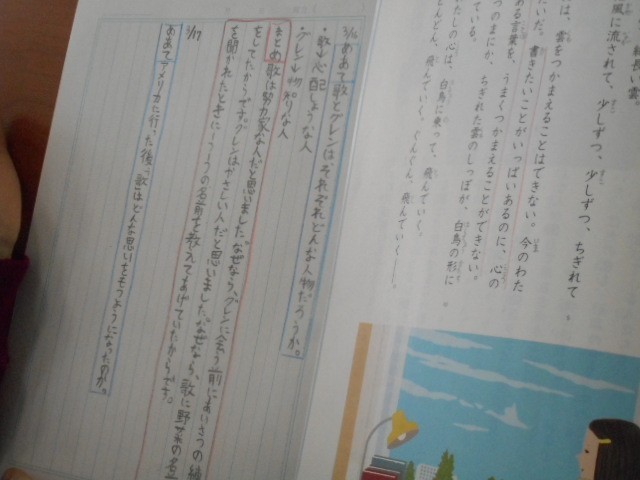 風に流されて、少しずつ、少しずつ、ちぎれて。
は、雲をつかまえることはできない。今のわた
いだ。書きたいことがいっぱいあるのに、心の
ある言葉を、うまくつかまえることができない。
つのまにか、ちぎれた雲のしっぽが、白鳥の形に
ている。
しの心は、白鳥に乗って、飛んでいく。
どんどん、飛んでいく、ぐんぐん、飛んでいく――。
めあて 歌とグレンはそれぞれどんな人物だろうか。
・歌 心配しょうな人
・グレン 物知りな人
まとめ 歌は努力家な人だと思いました。なぜなら、グレンに会う前にあいさつの練
をしてたからです。グレンはやさしい人だと思いました。なぜなら、歌に野菜の名
を聞かれたときに一つ一つの名前を教えてあげていたからです。
1/17
めあて アメリカに行った後、歌はどんな思いをもつようになったのか。